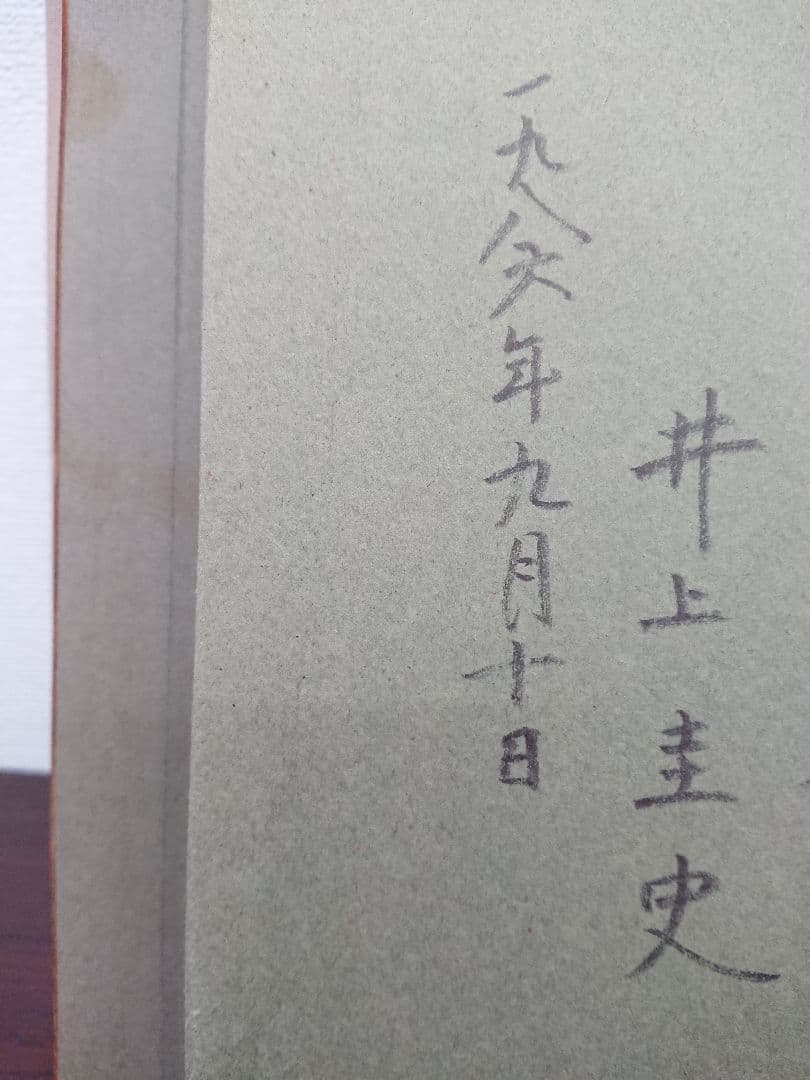 井上圭史
一九八六年九月十日